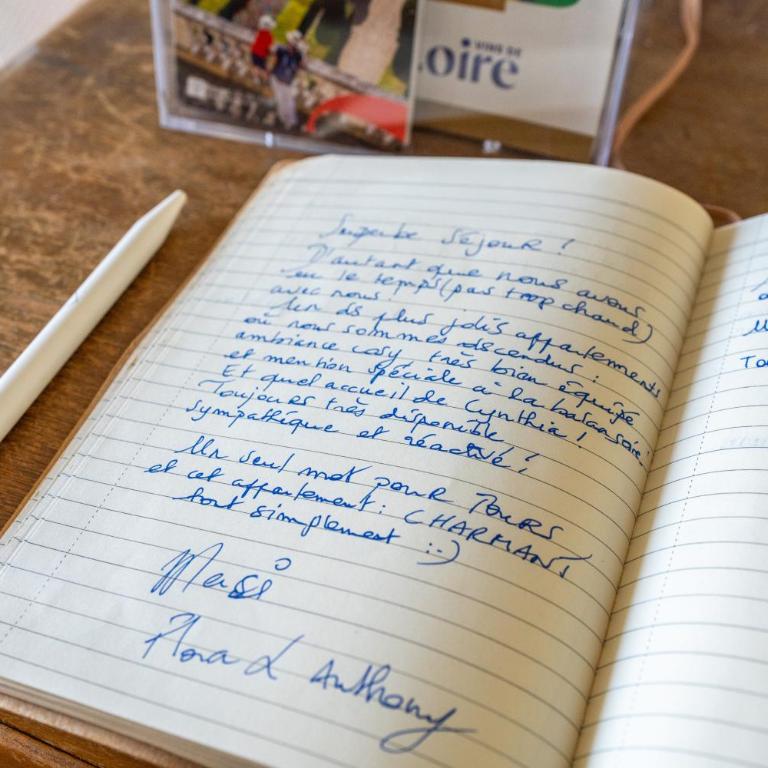 VINS DE
Loire
Superbe séjour !
D'autant que nous avons
eu le temps (pas trop chaud)
avec nous.
Un des plus jolis appartements
où nous sommes descendus :
ambiance cosy très bien équipé
et mention spéciale à la balançoire !
Et quel accueil de Cynthia !
Toujours très disponible
sympathique et réactive !
Un seul mot pour Tours
et cet appartement : CHARMANT
tout simplement :-)
Merci
Flora & Anthony